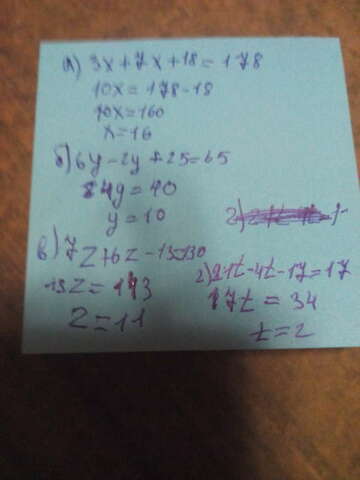 а) 3x+7x+18=178
10x=178-18
10x=160
x=16
б) 6y-2y+25=65
4y=40
y=10
в) 7z+6z-13=130
13z=143
z=11
г) 21t-4t-17=17
17t=34
t=2